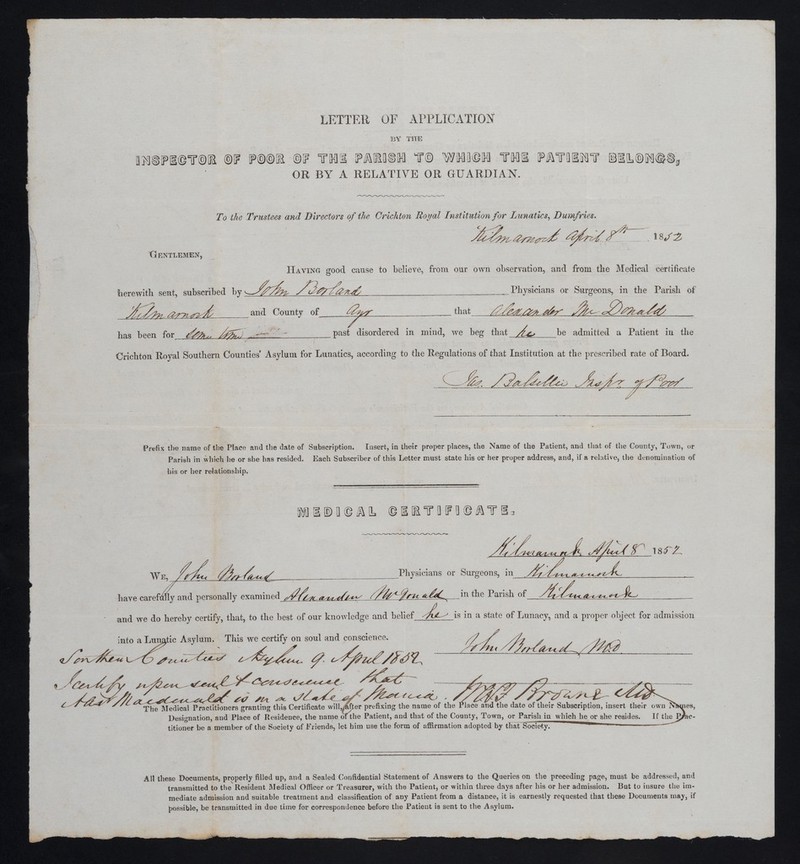 LETTER OF APPLICATION
BY THE
INSPECTOR OF POOR OF THE PARISH TO WHICH THE PATIENT BELONGS,
OR BY A RELATIVE OR GUARDIAN.
To the Trustees and Directors of the Crichton Royal Institution for Lunatics, Dumfries.
Kilmarnock April 8th 1852
GENTLEMEN,
HAVING good cause to believe, from our own observation, and from the Medical certificate
herewith sent, subscribed by John Borland Physicians or Surgeons, in the Parish of
Kilmarnock and County of Ayr that Alexander McDonald
has been for some time past disordered in mind, we beg that he be admitted a Patient in the
Crichton Royal Southern Counties' Asylum for Lunatics, according to the Regulations of that Institution at the prescribed rate of Board.
Jas. Balsillie Inspr of Poor
Prefix the name of the Place and the date of Subscription. Insert, in their proper places, the Name of the Patient, and that of the County, Town, or
Parish in which he or she has resided. Each Subscriber of this Letter must state his or her proper address, and, if a relative, the denomination of
his or her relationship.
MEDICAL CERTIFICATE.
Kilmarnock April 8 1852
WE, John Borland Physicians or Surgeons, in Kilmarnock
have carefully and personally examined Alexander McDonald in the Parish of Kilmarnock
and we do hereby certify, that, to the best of our knowledge and belief he is in a state of Lunacy, and a proper object for admission
into a Lunatic Asylum. This we certify on soul and conscience.
John Borland MD
Southern Counties Asylum 9. April 1852
I certify upon soul & conscience that
Alexr Macdonald is in a state of Mania. W.A.F. Browne MD
The Medical Practitioners granting this Certificate will, after prefixing the name of the Place and the date of their Subscription, insert their own Names,
Designation, and Place of Residence, the name of the Patient, and that of the County, Town, or Parish in which he or she resides. If the Prac-
titioner be a member of the Society of Friends, let him use the form of affirmation adopted by that Society.
All these Documents, properly filled up, and a Sealed Confidential Statement of Answers to the Queries on the preceding page, must be addressed, and
transmitted to the Resident Medical Officer or Treasurer, with the Patient, or within three days after his or her admission. But to insure the im-
mediate admission and suitable treatment and classification of any Patient from a distance, it is earnestly requested that these Documents may, if
possible, be transmitted in due time for correspondence before the Patient is sent to the Asylum.